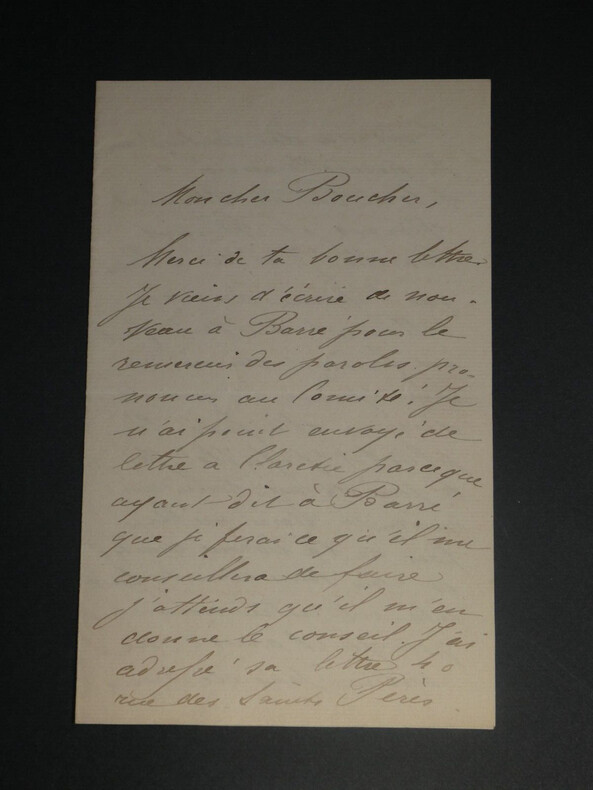 Mon cher Boucher,
Merci de ta bonne lettre
Je viens d'écrire de nou-
veau à Barré pour le
remercier des paroles pro-
noncés au Comité. Je
n'ai point envoyé de
lettre a Claretie parceque
ayant dit à Barré
que je ferai ce qu'il me
conseillera de faire
j'attends qu'il m'en
donne le conseil. J'ai
adressé sa lettre 40
rue des Saints Pères